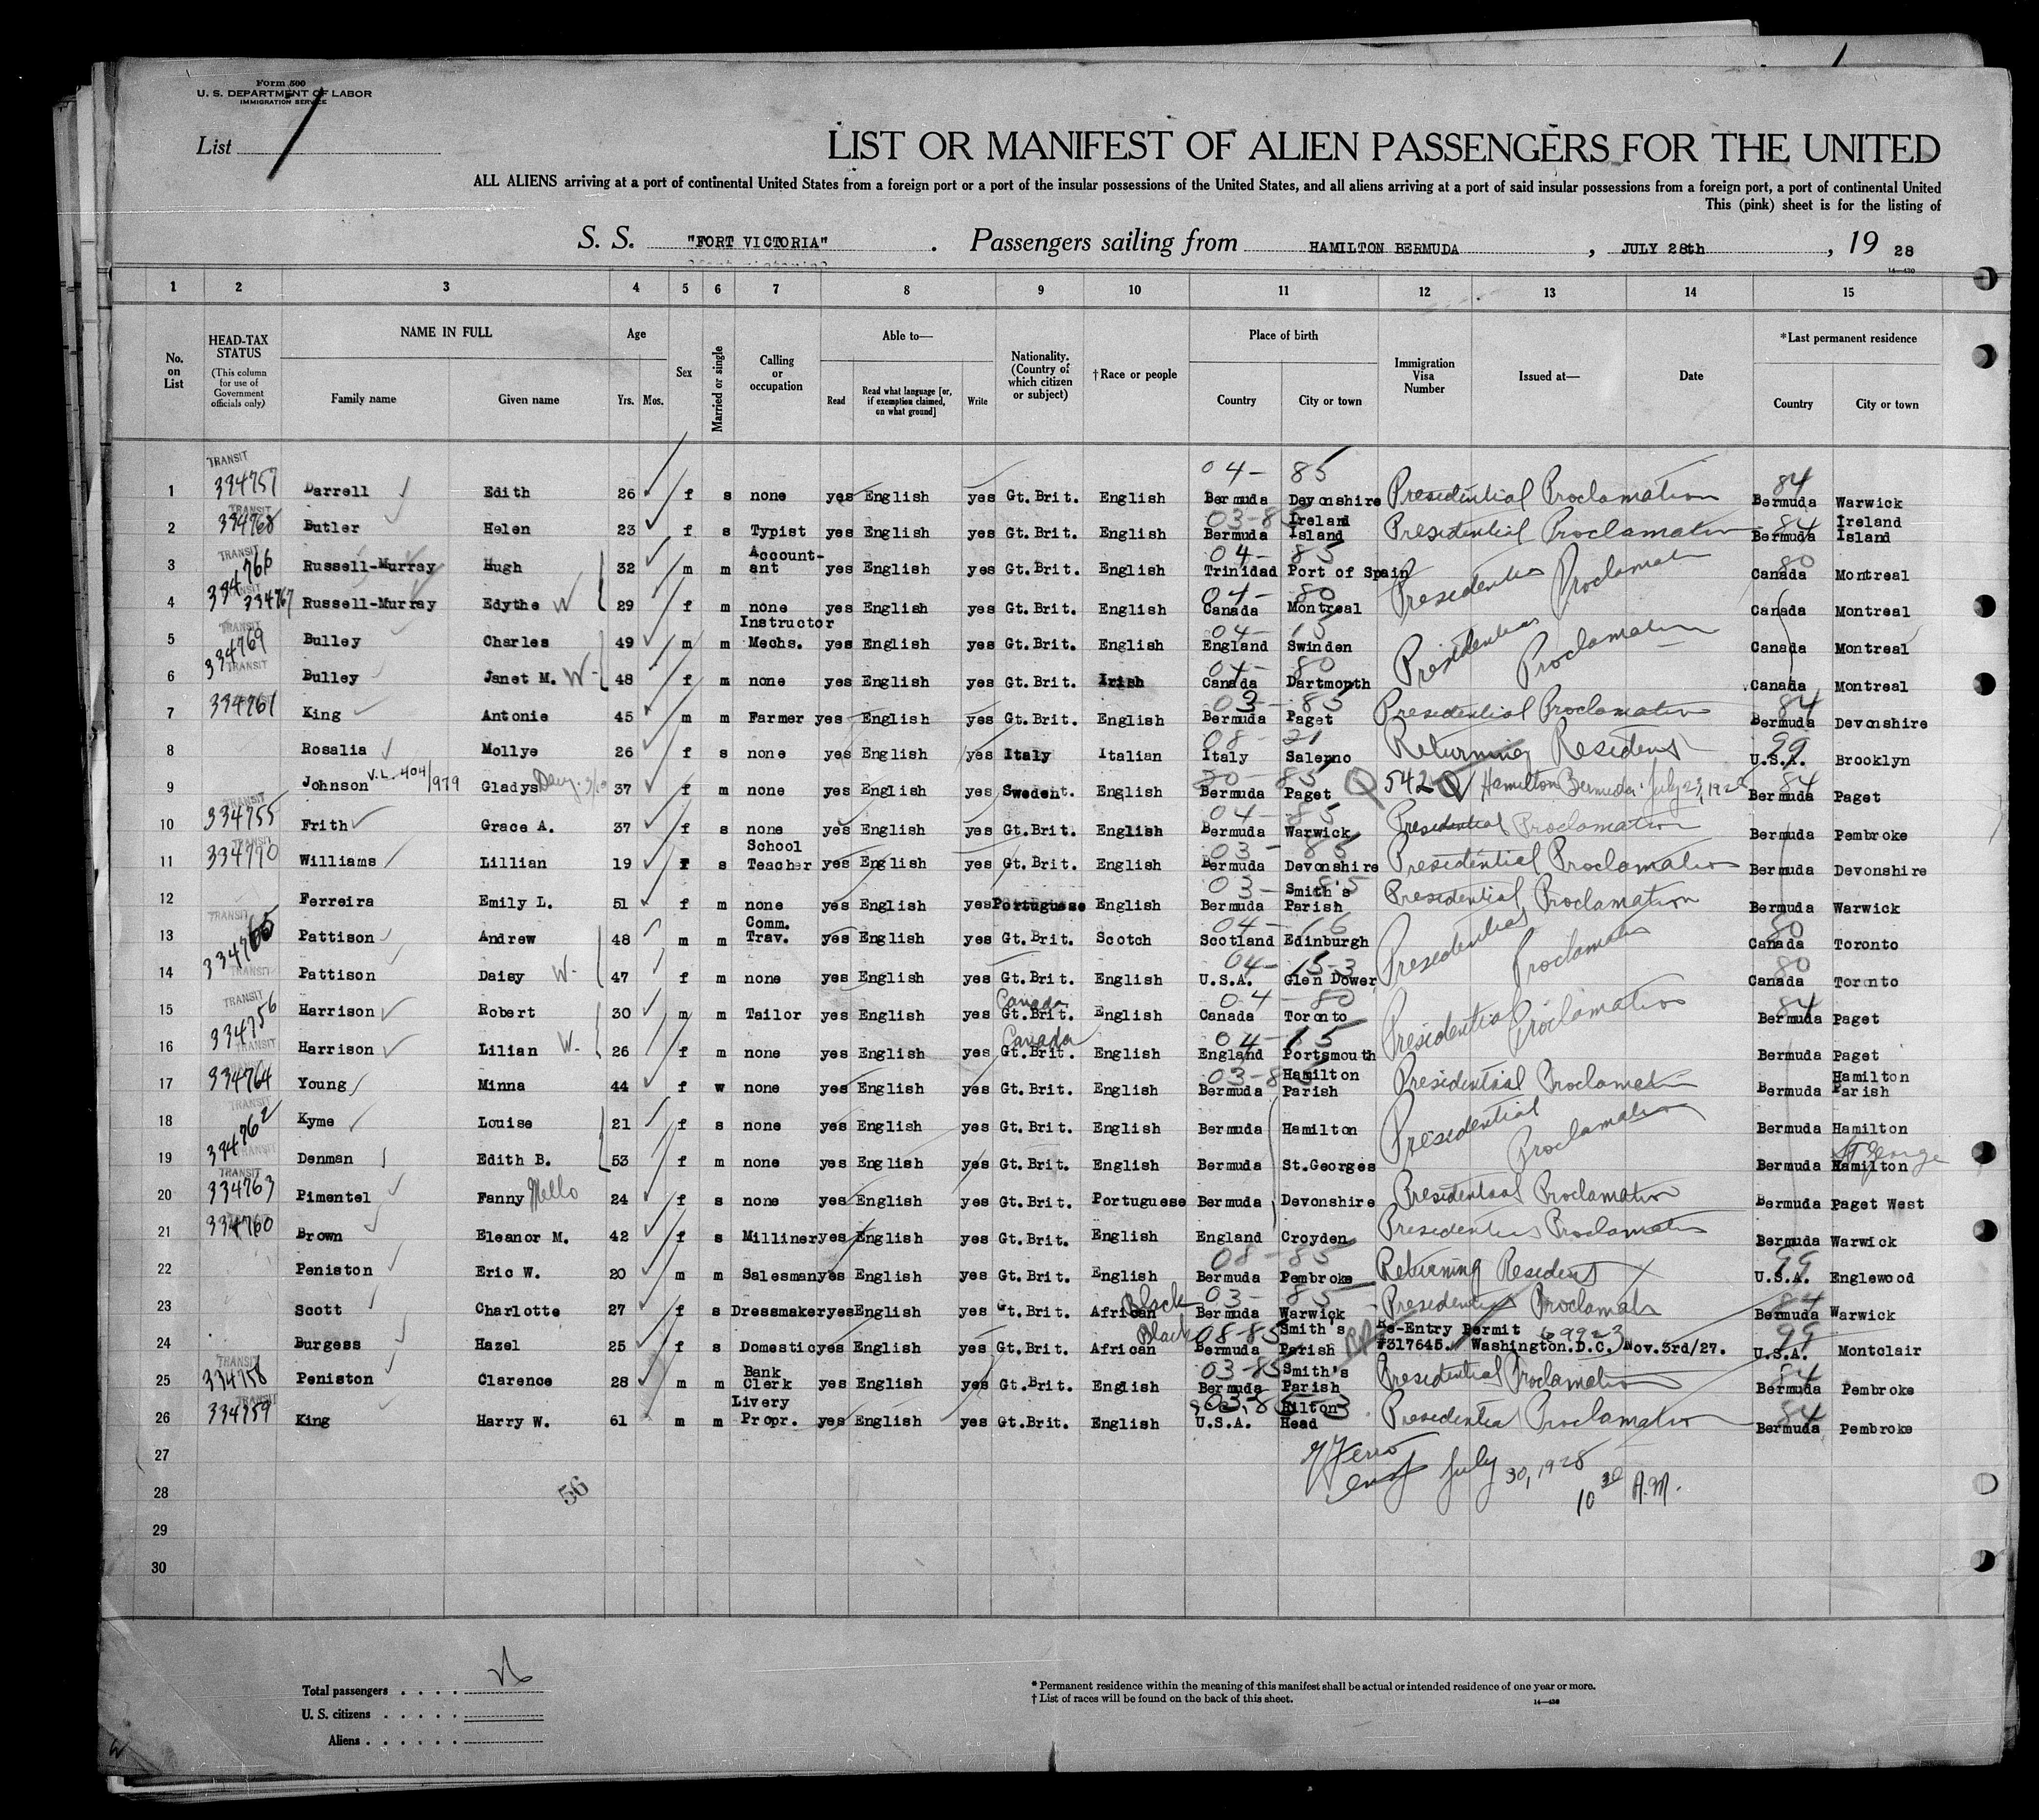 Form 500
U. S. DEPARTMENT OF LABOR
IMMIGRATION SERVICE
List 1
LIST OR MANIFEST OF ALIEN PASSENGERS FOR THE UNITED
ALL ALIENS arriving at a port of continental United States from a foreign port or a port of the insular possessions of the United States, and all aliens arriving at a port of said insular possessions from a foreign port, a port of continental United
This (pink) sheet is for the listing of
S. S. "FORT VICTORIA" . Passengers sailing from HAMILTON BERMUDA , JULY 28th , 19 28
14—430
1 2 3 4 5 6 7 8 9 10 11 12 13 14 15
No. on List HEAD-TAX STATUS (This column for use of Government officials only) NAME IN FULL Family name Given name Age Yrs. Mos. Sex Married or single Calling or occupation Able to— Read Read what language [or, if exemption claimed, on what ground] Write Nationality. (Country of which citizen or subject) †Race or people Place of birth Country City or town Immigration Visa Number Issued at— Date *Last permanent residence Country City or town
1 TRANSIT 334757 Darrell Edith 26 f s none yes English yes Gt.Brit. English 04-85 Bermuda Devonshire Presidential Proclamation 84 Bermuda Warwick
2 TRANSIT 334768 Butler Helen 23 f s Typist yes English yes Gt.Brit. English 03-85 Bermuda Ireland Island Presidential Proclamation 84 Bermuda Ireland Island
3 TRANSIT 334766 Russell-Murray Hugh 32 m m Accountant yes English yes Gt.Brit. English 04-85 Trinidad Port of Spain Presidential Proclamation 80 Canada Montreal
4 TRANSIT 334767 Russell-Murray Edythe W 29 f m none yes English yes Gt.Brit. English 04-80 Canada Montreal Canada Montreal
5 TRANSIT 334769 Bulley Charles 49 m m Instructor Mechs. yes English yes Gt.Brit. English 04-15 England Swinden Presidential Proclamation Canada Montreal
6 TRANSIT Bulley Janet M. W- 48 f m none yes English yes Gt.Brit. Irish 04-80 Canada Dartmouth Canada Montreal
7 334761 King Antonie 45 m m Farmer yes English yes Gt.Brit. English 03-85 Bermuda Paget Presidential Proclamation 84 Bermuda Devonshire
8 Rosalia Mollye 26 f s none yes English yes Italy Italian 08-21 Italy Salerno Returning Resident 99 U.S.A. Brooklyn
9 Johnson V.L. 404/979 Gladys 37 f m none yes English yes Sweden English Bermuda Paget Q 542 Q Hamilton Bermuda July 23, 1928 84 Bermuda Paget
10 TRANSIT 334755 Frith Grace A. 37 f s none yes English yes Gt.Brit. English 04-85 Bermuda Warwick Presidential Proclamation Bermuda Pembroke
11 TRANSIT 334770 Williams Lillian 19 f s School Teacher yes English yes Gt.Brit. English 03-85 Bermuda Devonshire Presidential Proclamation Bermuda Devonshire
12 Ferreira Emily L. 51 f m none yes English yes Portuguese English 03-85 Bermuda Smith's Parish Presidential Proclamation Bermuda Warwick
13 TRANSIT 334765 Pattison Andrew 48 m m Comm. Trav. yes English yes Gt.Brit. Scotch 04-16 Scotland Edinburgh Presidential Proclamation 80 Canada Toronto
14 TRANSIT Pattison Daisy W- 47 f m none yes English yes Gt.Brit. English 04-15-3 U.S.A. Glen Dower 80 Canada Toronto
15 TRANSIT 334756 Harrison Robert 30 m m Tailor yes English yes Canada Gt.Brit. English 04-80 Canada Toronto Presidential Proclamation 84 Bermuda Paget
16 TRANSIT Harrison Lilian W- 26 f m none yes English yes Canada Gt.Brit. English 04-15 England Portsmouth Bermuda Paget
17 334764 Young Minna 44 f w none yes English yes Gt.Brit. English 03-85 Bermuda Hamilton Parish Presidential Proclamation Bermuda Hamilton Parish
18 TRANSIT 334762 Kyme Louise 21 f s none yes English yes Gt.Brit. English Bermuda Hamilton Presidential Proclamation Bermuda Hamilton
19 TRANSIT Denman Edith B. 53 f m none yes English yes Gt.Brit. English Bermuda St.Georges Bermuda Hamilton St George
20 TRANSIT 334763 Pimentel Fanny Mello 24 f s none yes English yes Gt.Brit. Portuguese Bermuda Devonshire Presidential Proclamation Bermuda Paget West
21 334760 Brown Eleanor M. 42 f s Milliner yes English yes Gt.Brit. English England Croyden Presidential Proclamation Bermuda Warwick
22 Peniston Eric W. 20 m m Salesman yes English yes Gt.Brit. English 08-85 Bermuda Pembroke Returning Resident 99 U.S.A. Englewood
23 Scott Charlotte 27 f s Dressmaker yes English yes Gt.Brit. African Black 03-85 Bermuda Warwick Presidential Proclamation 84 Bermuda Warwick
24 Burgess Hazel 25 f s Domestic yes English yes Gt.Brit. African Black 08-85 Bermuda Smith's Parish Re-Entry Permit #317645. Washington.D.C. Nov.3rd/27. 99 U.S.A. Montclair
25 TRANSIT 334758 Peniston Clarence 28 m m Bank Clerk yes English yes Gt.Brit. English 03-85 Bermuda Smith's Parish Presidential Proclamation 84 Bermuda Pembroke
26 TRANSIT 334759 King Harry W. 61 m m Livery Propr. yes English yes Gt.Brit. English 03-85-3 U.S.A. Hilton Head Presidential Proclamation 84 Bermuda Pembroke
27
28 July 30, 1928 10 30 A.M.
56
29
30
Total passengers . . . .
U. S. citizens . . . . .
Aliens . . . . . .
* Permanent residence within the meaning of this manifest shall be actual or intended residence of one year or more.
† List of races will be found on the back of this sheet.
14—430